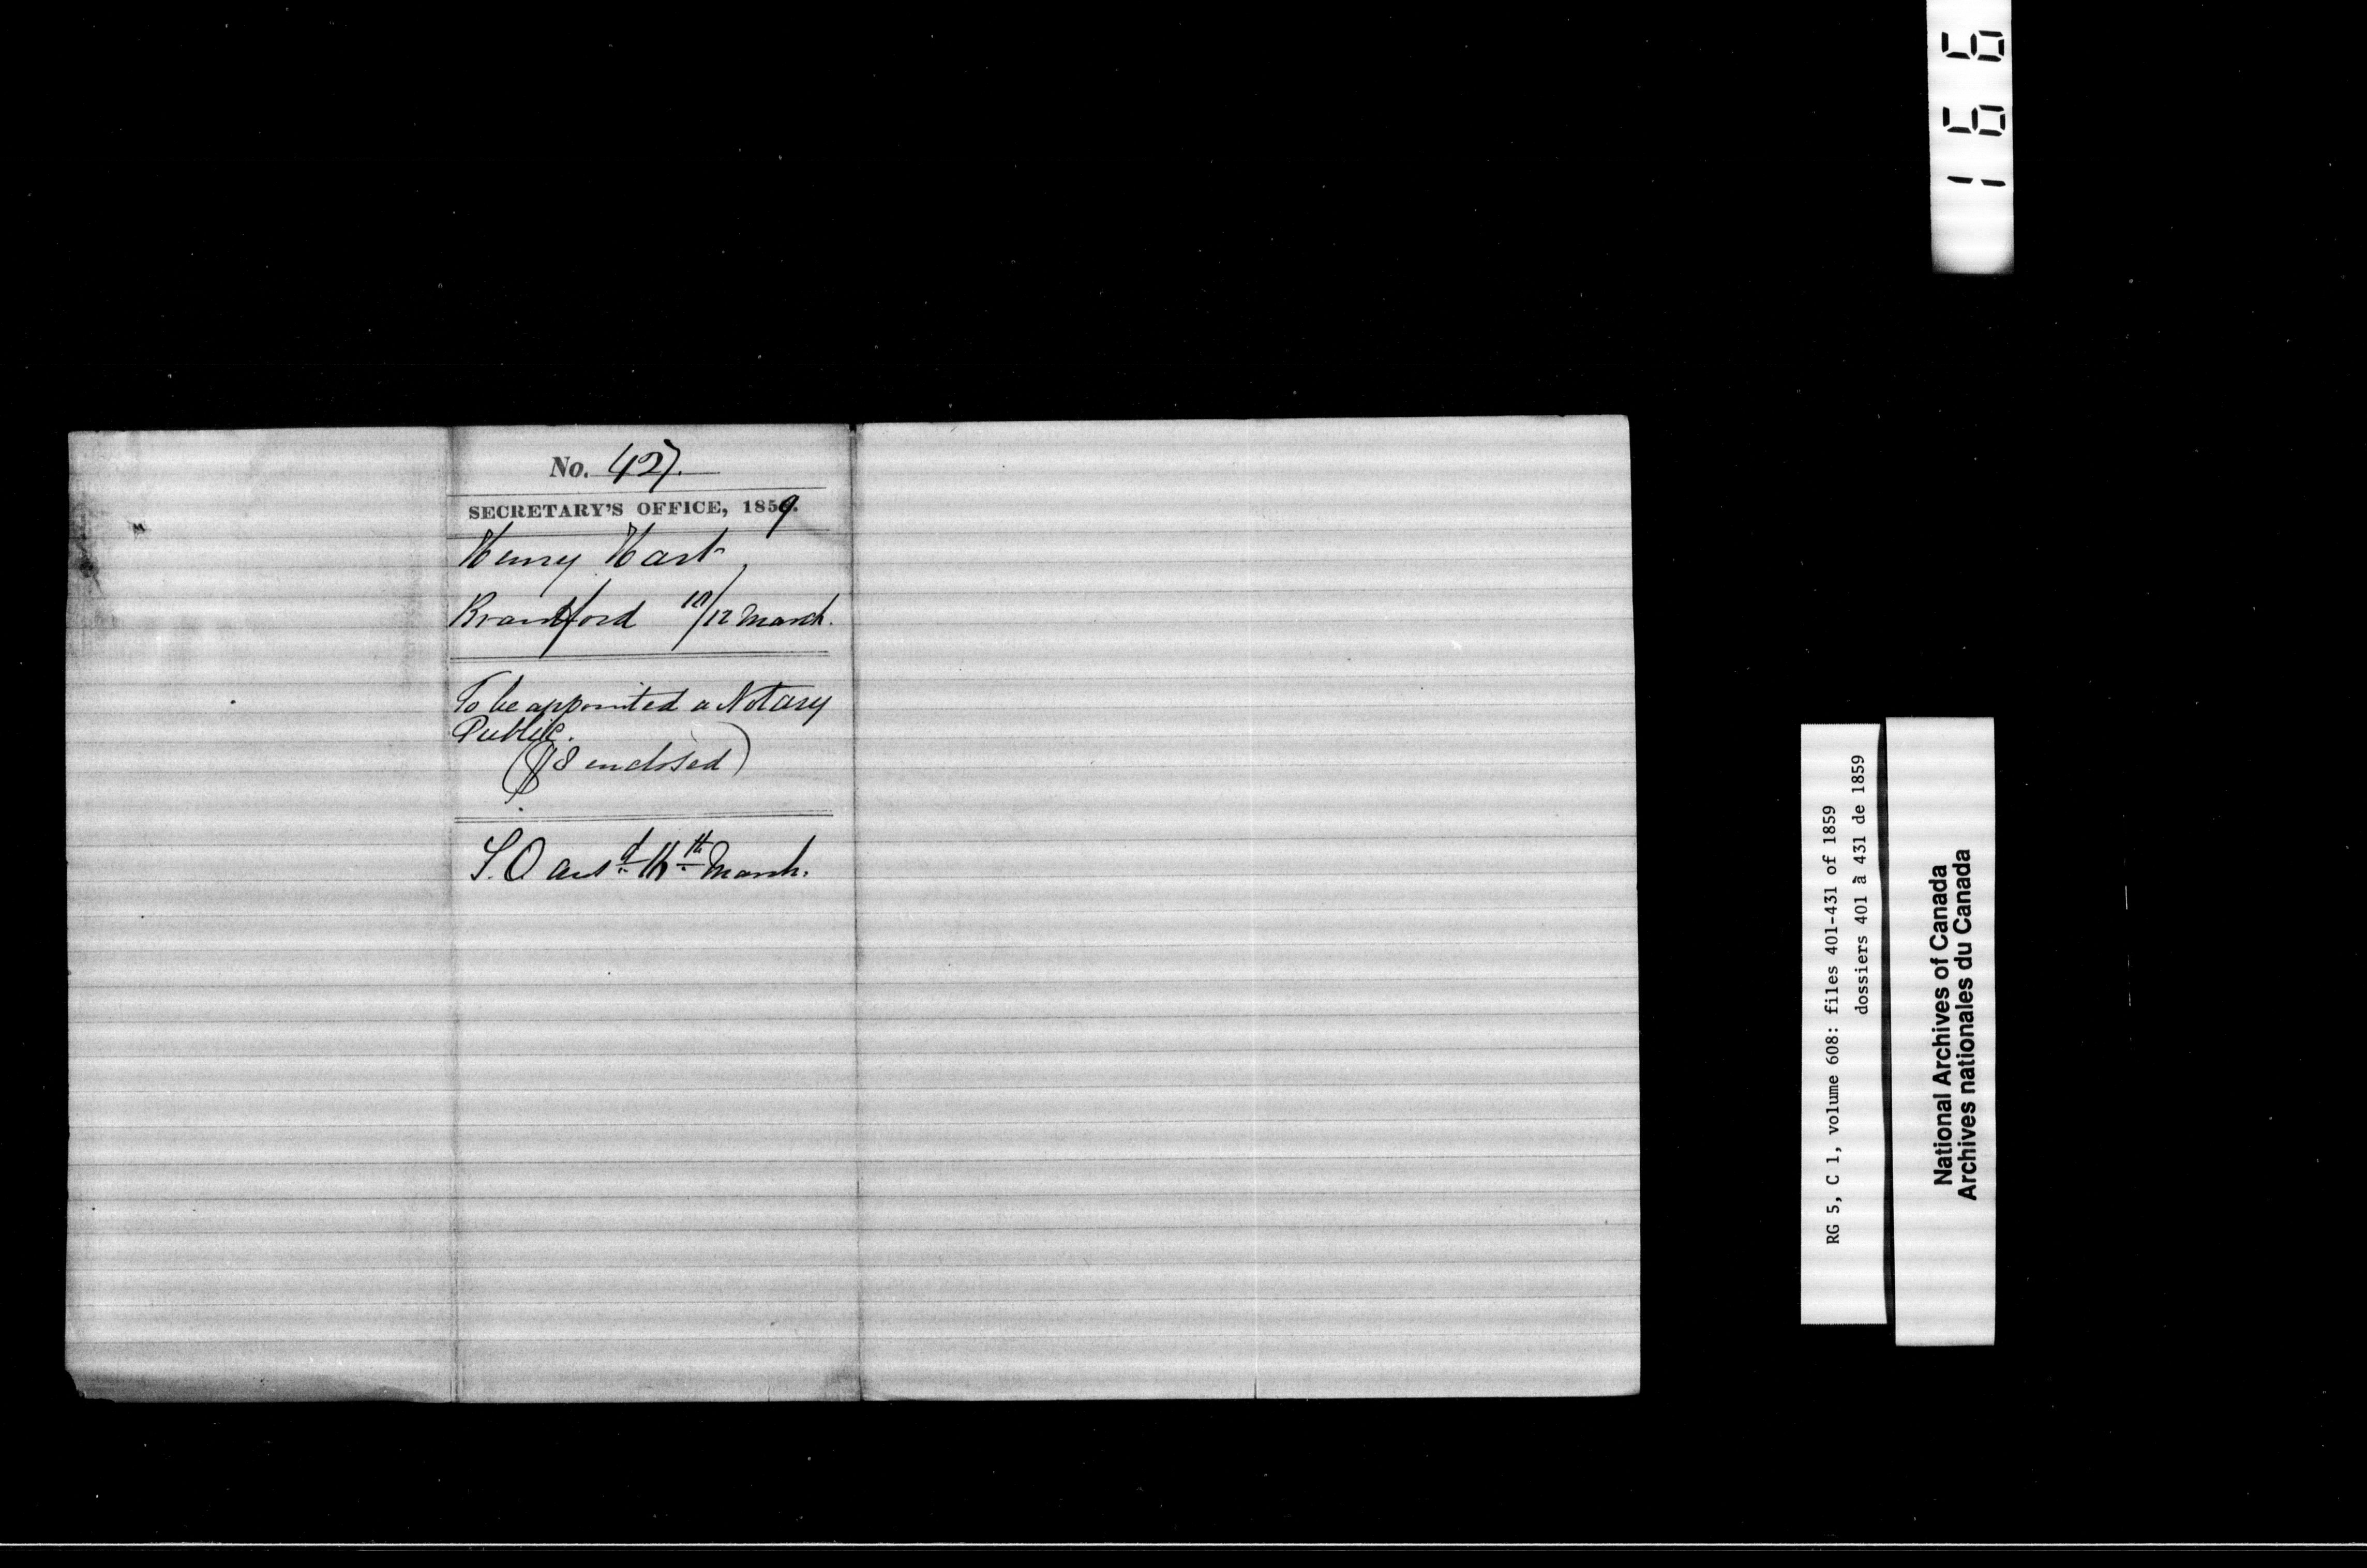 No. 427.
SECRETARY'S OFFICE, 1859.
Henry Hart,
Brantford 10/12 March.
To be appointed a Notary
Public.
($8 enclosed)
S.O ansd March.
166
RG 5, C 1, volume 608: files 401-431 of 1859
dossiers 401 à 431 de 1859
National Archives of Canada
Archives nationales du Canada